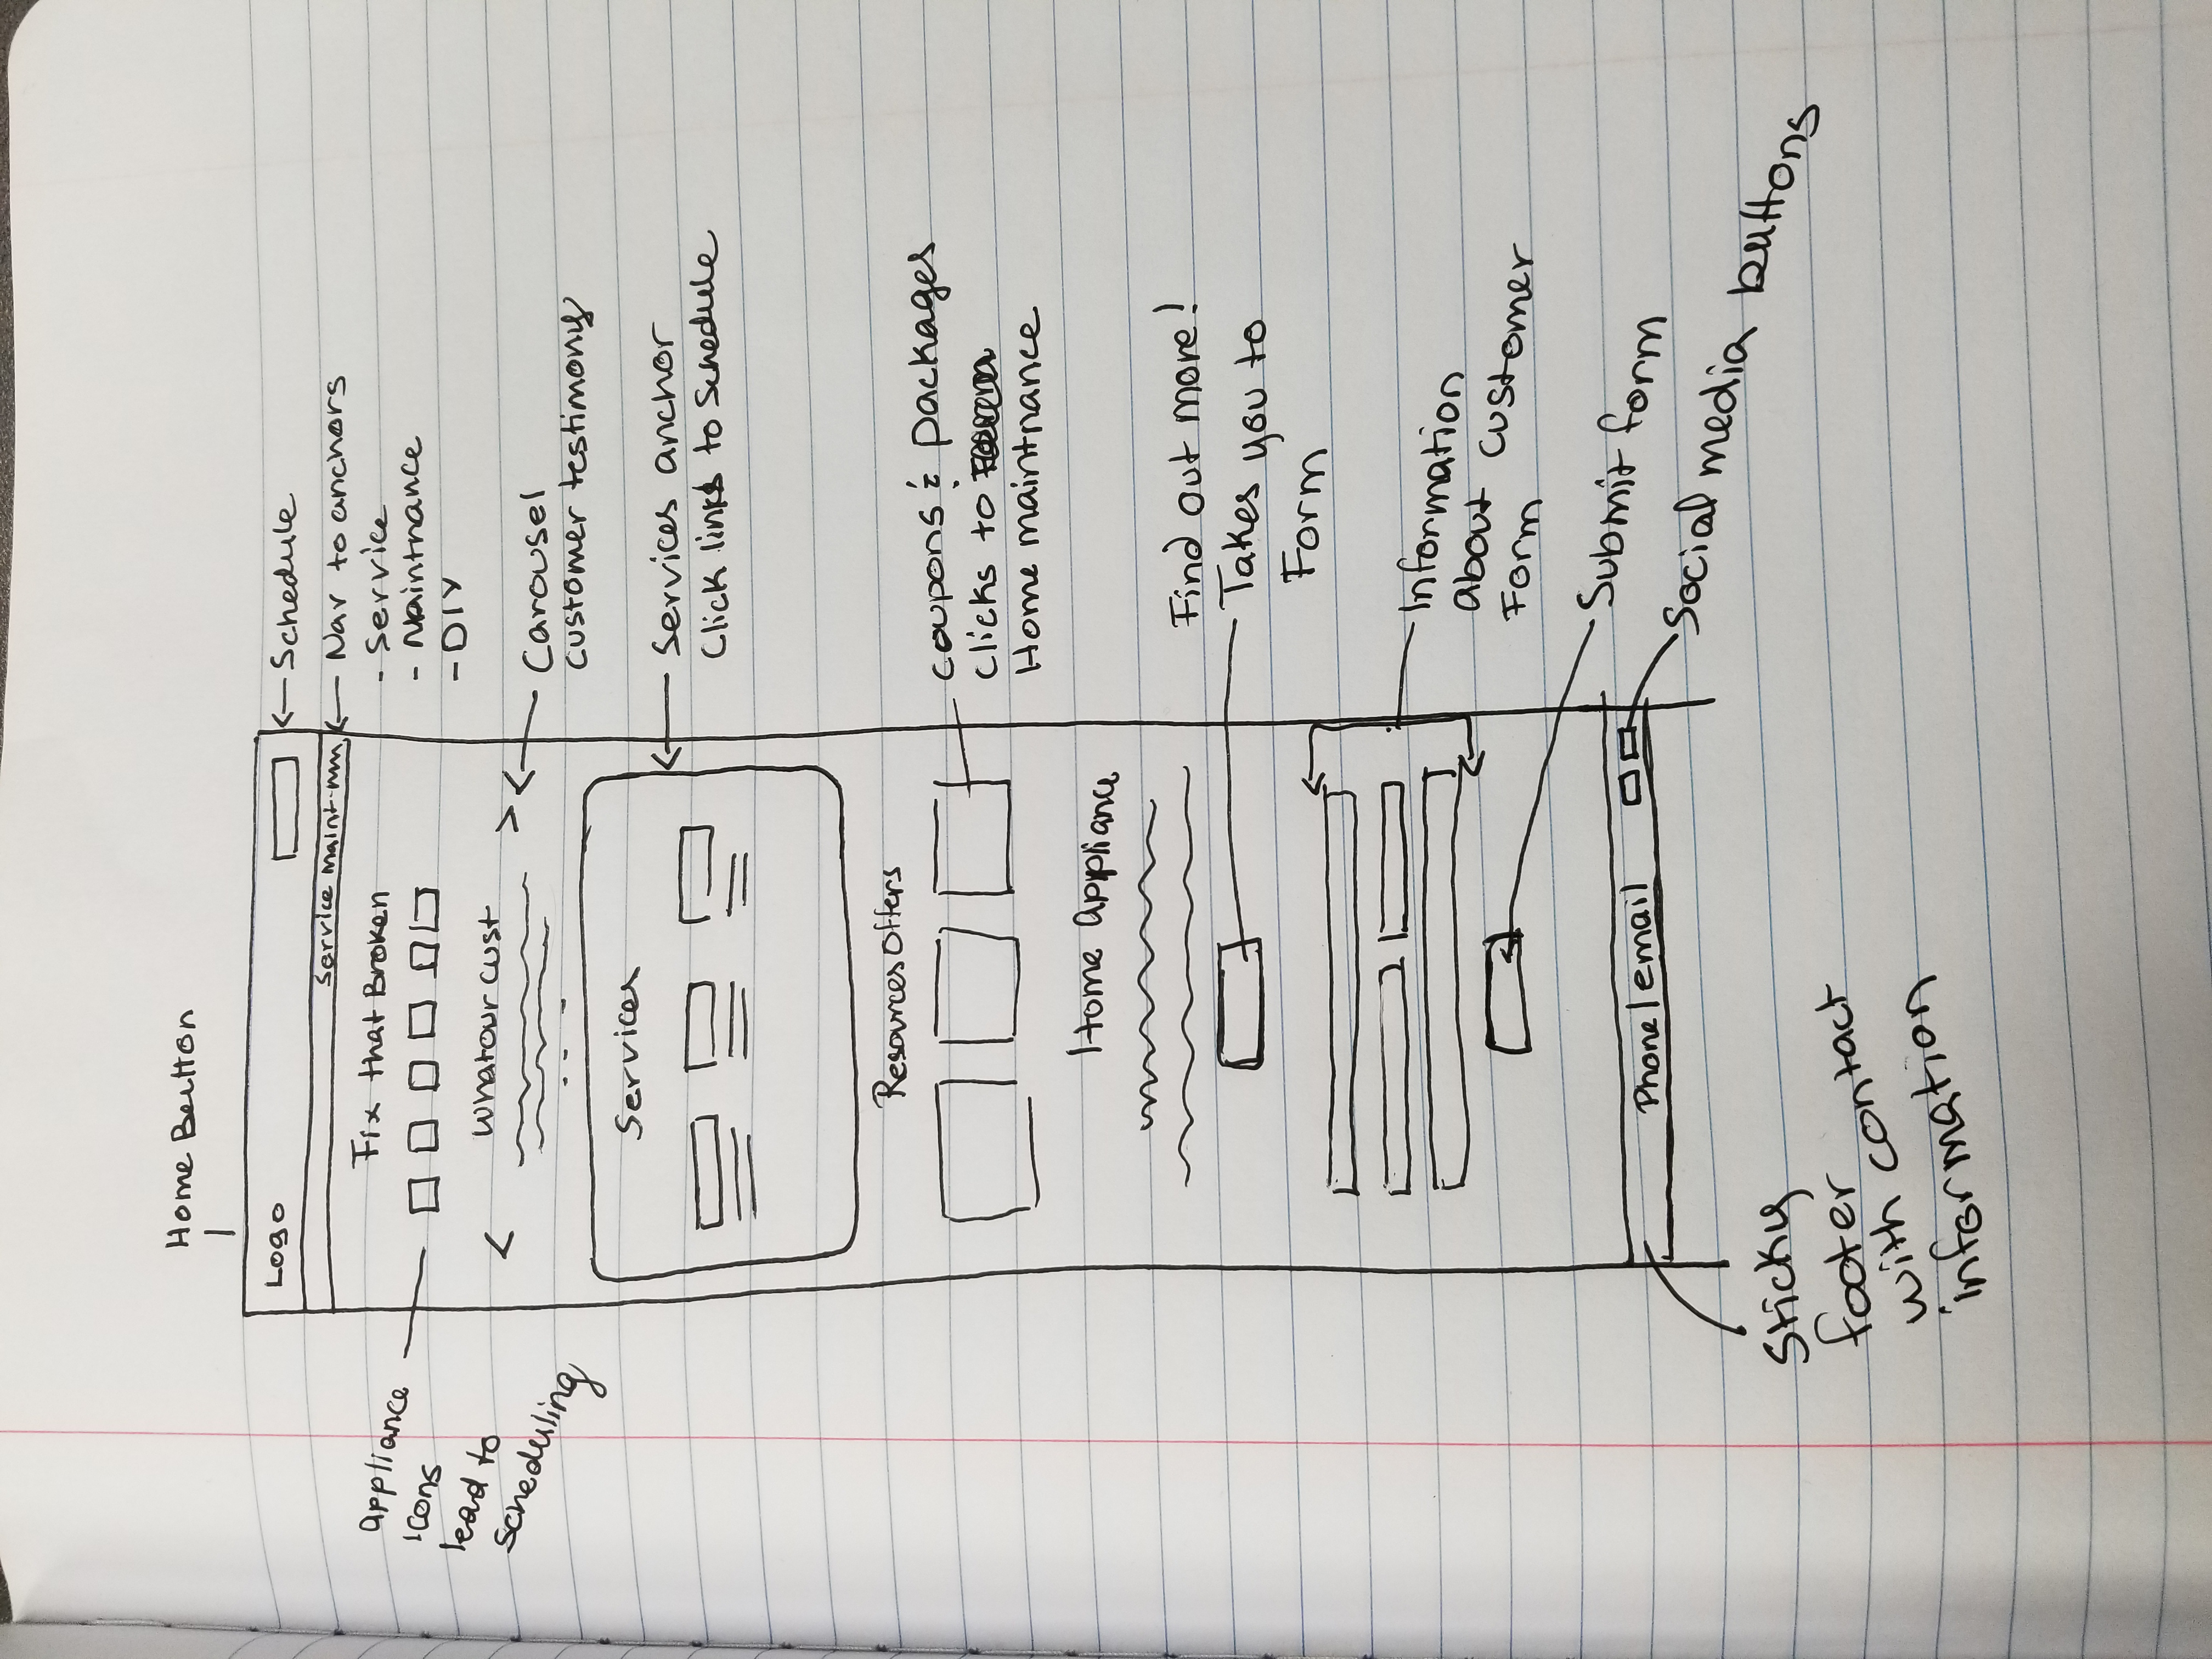 Home Button
Logo
Schedule
Service maint
Nav to anchors
- Service
- Maintnance
- DIY
Fix that Broken
appliance
icons
lead to
scheduling
What our cust
<
>
Carousel
customer testimony
Services
Services anchor
Click links to Schedule
Resources Offers
coupons & packages
clicks to
Home maintnance
Home Appliance
Find out more!
Takes you to
Form
Information
about customer
Form
Submit form
Phone/email
Social media buttons
Sticky
footer
with contact
information